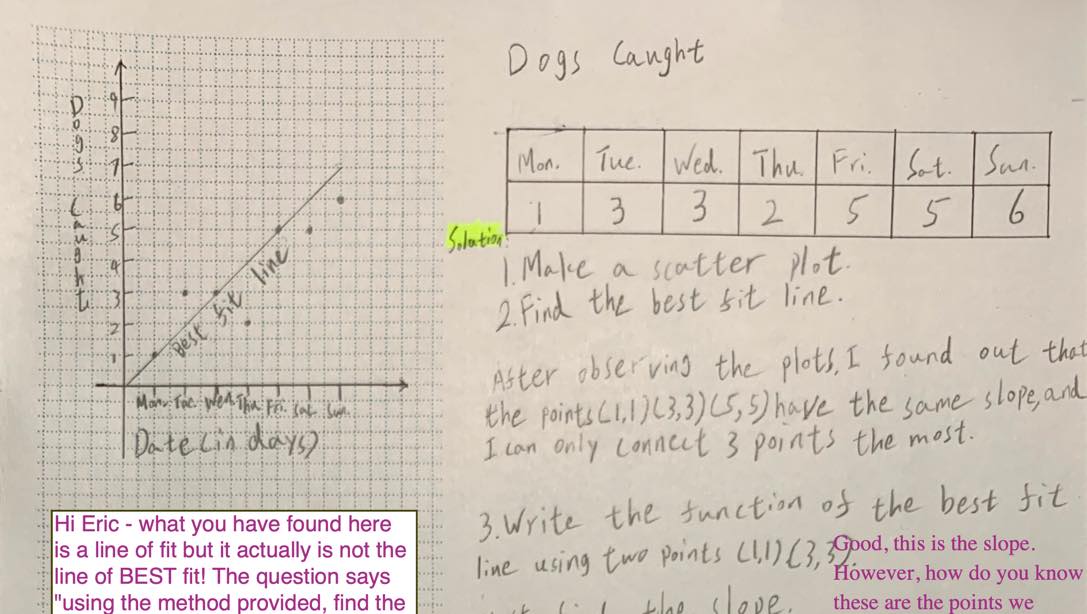 Dogs Caught
9
8
7
6
5
4
3
2
1
Dogs Caught
Best fit line
Mon. Tue. Wed. Thu. Fri. Sat. Sun.
Date (in days)
Mon. Tue. Wed. Thu. Fri. Sat. Sun.
1 3 3 2 5 5 6
Solution:
1. Make a scatter plot.
2. Find the best fit line.
After observing the plots, I found out that
the points (1,1) (3,3) (5,5) have the same slope, and
I can only connect 3 points the most.
3. Write the function of the best fit
line using two points (1,1) (3,3).
the slope.
Hi Eric - what you have found here
is a line of fit but it actually is not the
line of BEST fit! The question says
"using the method provided, find the
Good, this is the slope.
However, how do you know
these are the points we